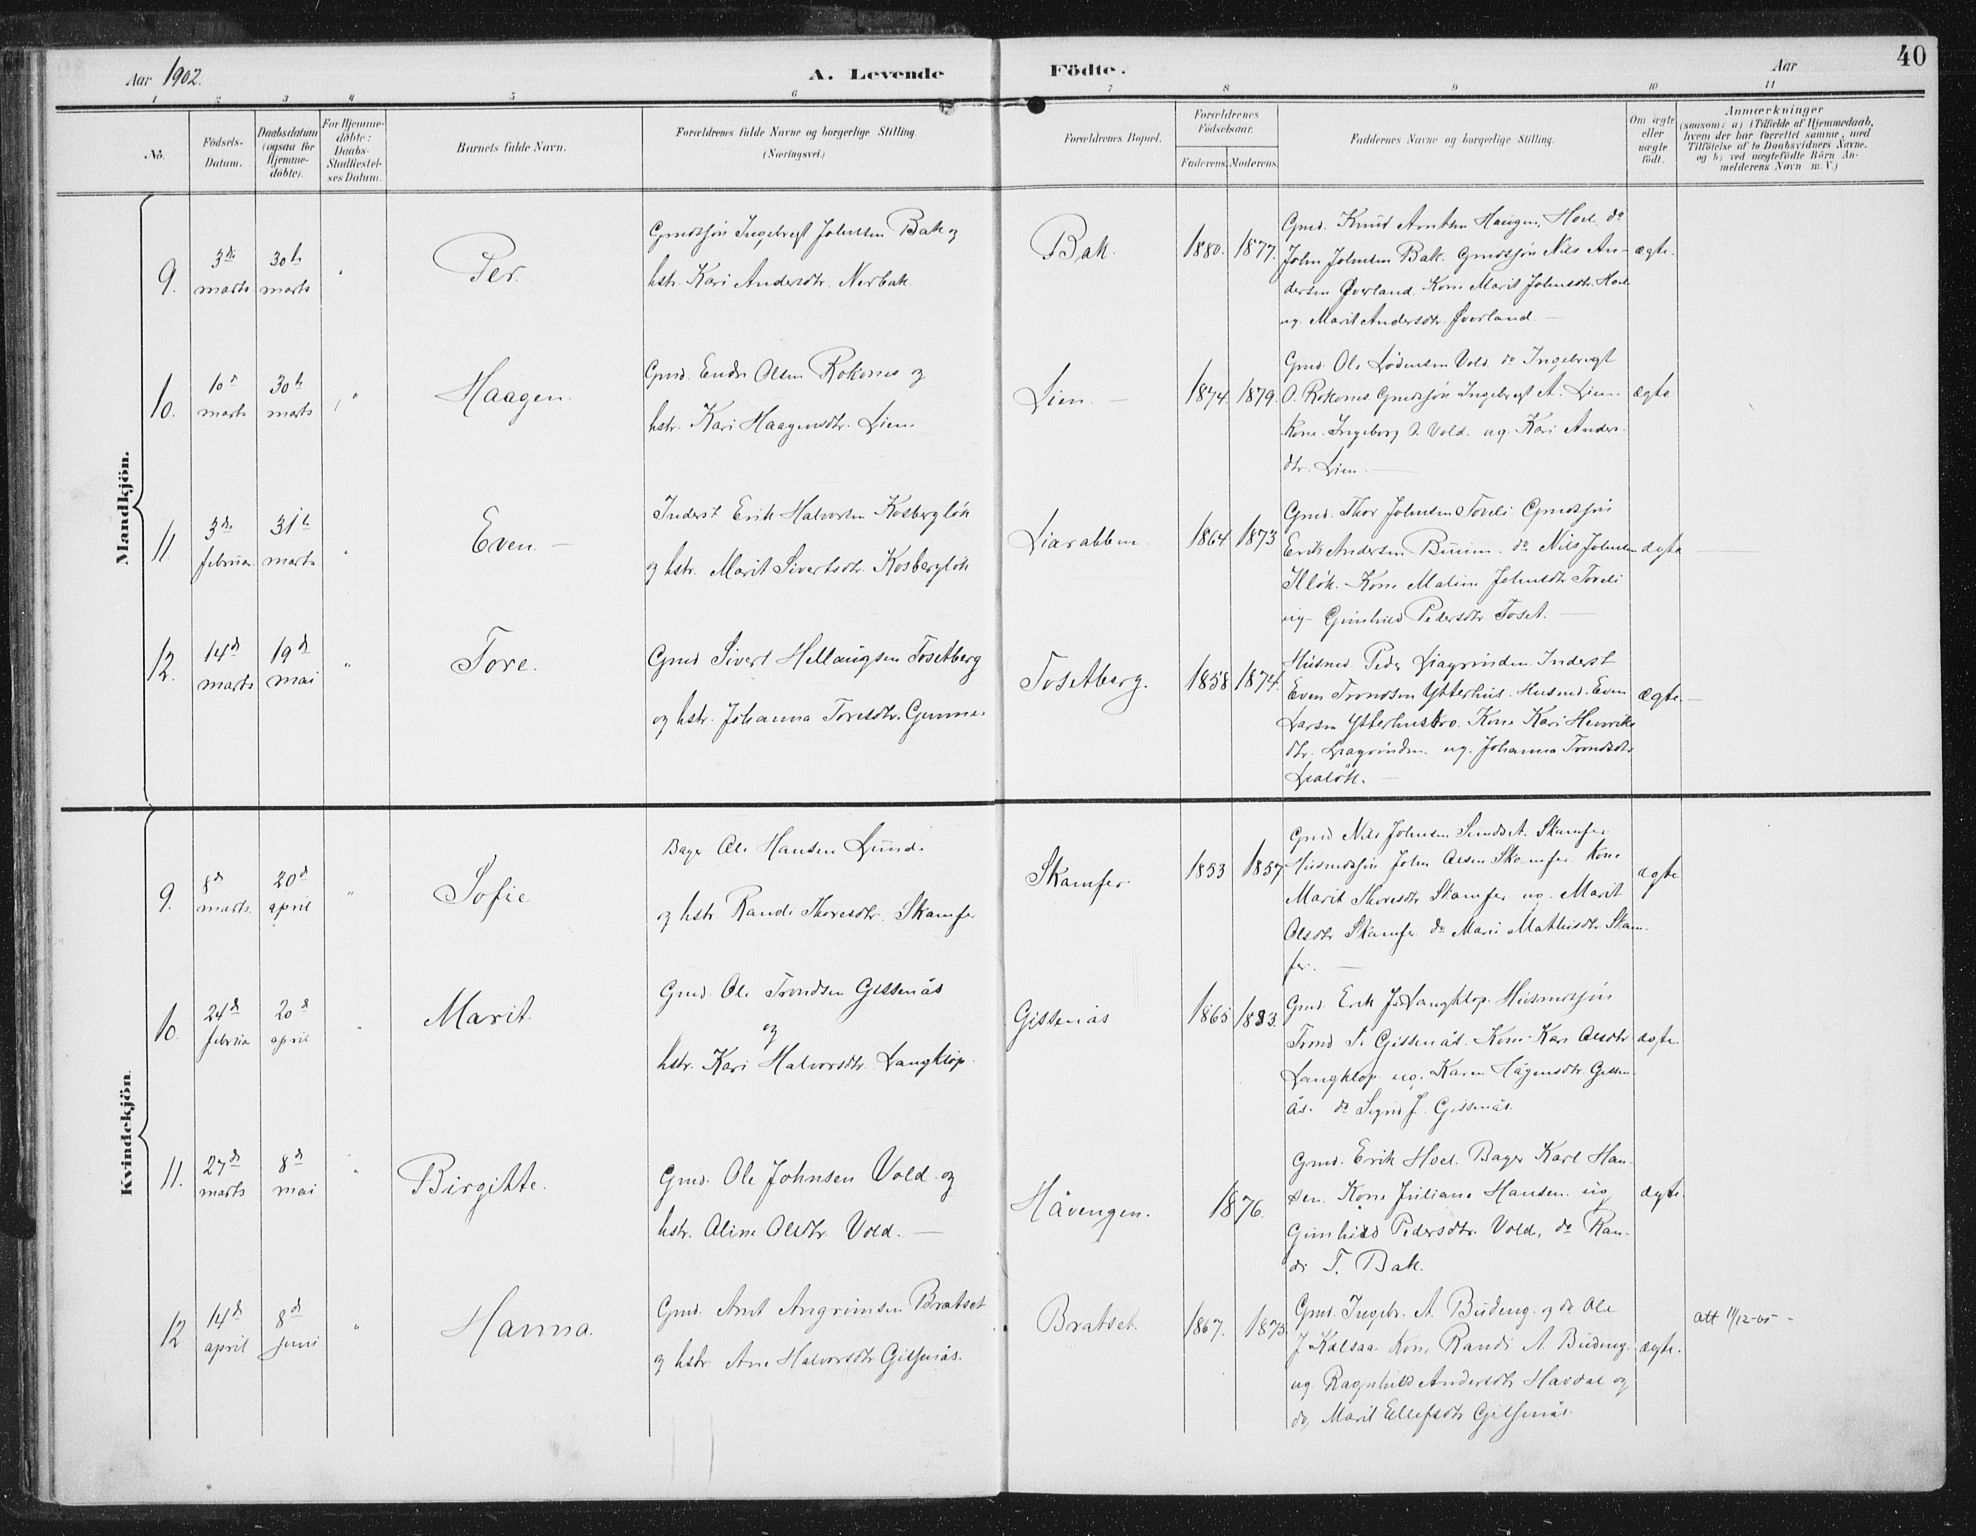 Aar 1902.
A. Levende Födte.
Aar
40
1 2 3 4 5 6 7 8 9 10 11
No.
Födsels-
Datum.
Daabsdatum
(ogsaa for
Hjemme-
döbte).
For Hjemme-
döbte:
Daabs-
Stadfæstel-
ses Datum.
Barnets fulde Navn.
Forældrenes fulde Navne og borgerlige Stilling.
(Næringsvei.)
Forældrenes Bopæl.
Forældrenes
Födselsaar.
Faderens. Moderens.
Faddernes Navne og borgerlige Stilling.
Om ægte
eller
uægte
födt.
Anmærkninger
(saasom: a) i Tilfælde af Hjemmedaab,
hvem der har forrettet samme, med
Tilföielse af to Daabsvidners Navne.
og b) ved uægtefödte Börn An-
melderens Navn m. V.)
Mandkjön.
9.
3die
marts
30te
marts
"
Per.
Gmdsjön Ingebregt Johnsen Bak og
hstr. Kari Andersdtr. Nerbak.
Bak.
1880. 1877.
Gmd. Knud Arntsen Haugen, Hoel. do
John Johnsen Bak. Gmdsjön Nils An-
dersen Øverland. Kone Marit Johnsdtr. Hoel
ug. Marit Andersdtr. Øverland. —
ægte.
10.
10de
marts
30te
marts
"
Haagen.
Gmd. Endre Olsen Rokones og
hstr. Kari Haagensdtr. Lien.
Lien. —
1874. 1879.
Gmd. Ole Lødensen Vold. do Ingebregt
O. Rokones Gmdsjön Ingebregt A. Lien.
Kone. Ingeborg O. Vold. ug. Kari Anders-
dtr. Lien. —
ægte
11.
3die
februar.
31te
marts
"
Even. —
Inderst Erik Halvorsen Kosbergløk
og hstr. Marit Sivertsdtr. Kosbergløk
Liarabben.
1864 1873
Gmd. Thor Johnsen Toreli Gmdsjön
Erik Andersen Buum. do Nils Johnsen
Illøk. Kone Malene Johnsdtr Toreli
ug. Gunhild Pedersdtr Foset. —
ægte —
12.
14de
marts
19de
mai
"
Tore.
Gmd Sivert Hellaugsen Fosetberg
og hstr. Johanna Toresdtr. Gunnes
Fosetberg.
1858 1874.
Husmd. Peder Liagrinden. Inderst
Even Trondsen Ytterhus. Husmd. Even
Larsen Ytterhusbro. Kone Kari Henriks
dtr. Liagrinden ug. Johanna Trondsdtr
Lialök. —
ægte. —
Kvindekjön.
9.
8de
marts.
20de
april
"
Sofie
Bager Ole Hansen Lund.
og hstr Randi Thoresdtr. Skamfer
Skamfer.
1853 1857
Gmd Nils Johnsen Sundset. Skamfer.
Husmdsjön John Olsen Skamfer. Kone
Marit Thoresdtr Skamfer ug. Marit
Olsdtr Skamfer do Marie Mathisdtr Skam-
fer. —
ægte
10.
24de
februar
20de
april
"
Marit.
Gmd. Ole Trondsen Gissenås
og
hstr. Kari Halvorsdtr. Langklop.
Gissenås
1865 1883.
Gmd. Erik J. Langklop. Husmdsjön
Trond T. Gissenås. Kone Kari Olsdtr.
Langklop. ug. Karen Hågensdtr Gissen-
ås. do Sigrid J. Gissenås.
ægte.
11.
27de
marts
8de
mai
"
Birgitte.
Gmd. Ole Johnsen Vold. og
hstr. Aline Olsdtr. Vold. —
Håvengen.
1876.
Gmd. Erik Hoel. Bager Karl Han-
sen. Kone Juliane Hansen. ug
Gunhild Pedersdtr. Vold, do Ran-
di T. Bak.
ægte.
12
14de
april
8de
juni
"
Hanna.
Gmd. Arnt Angrimsen Bratset
og hstr Ane Halvorsdtr Gilsenås.
Bratset.
1867. 1875.
Gmd. Ingebr. A. Budeng. og do Ole
J Kalsaa. Kone Randi A. Budeng.
ug. Ragnhild Andersdtr Havdal og
do. Marit Ellefsdtr Gilsenås.
ægte.
Att 11/12-05 –